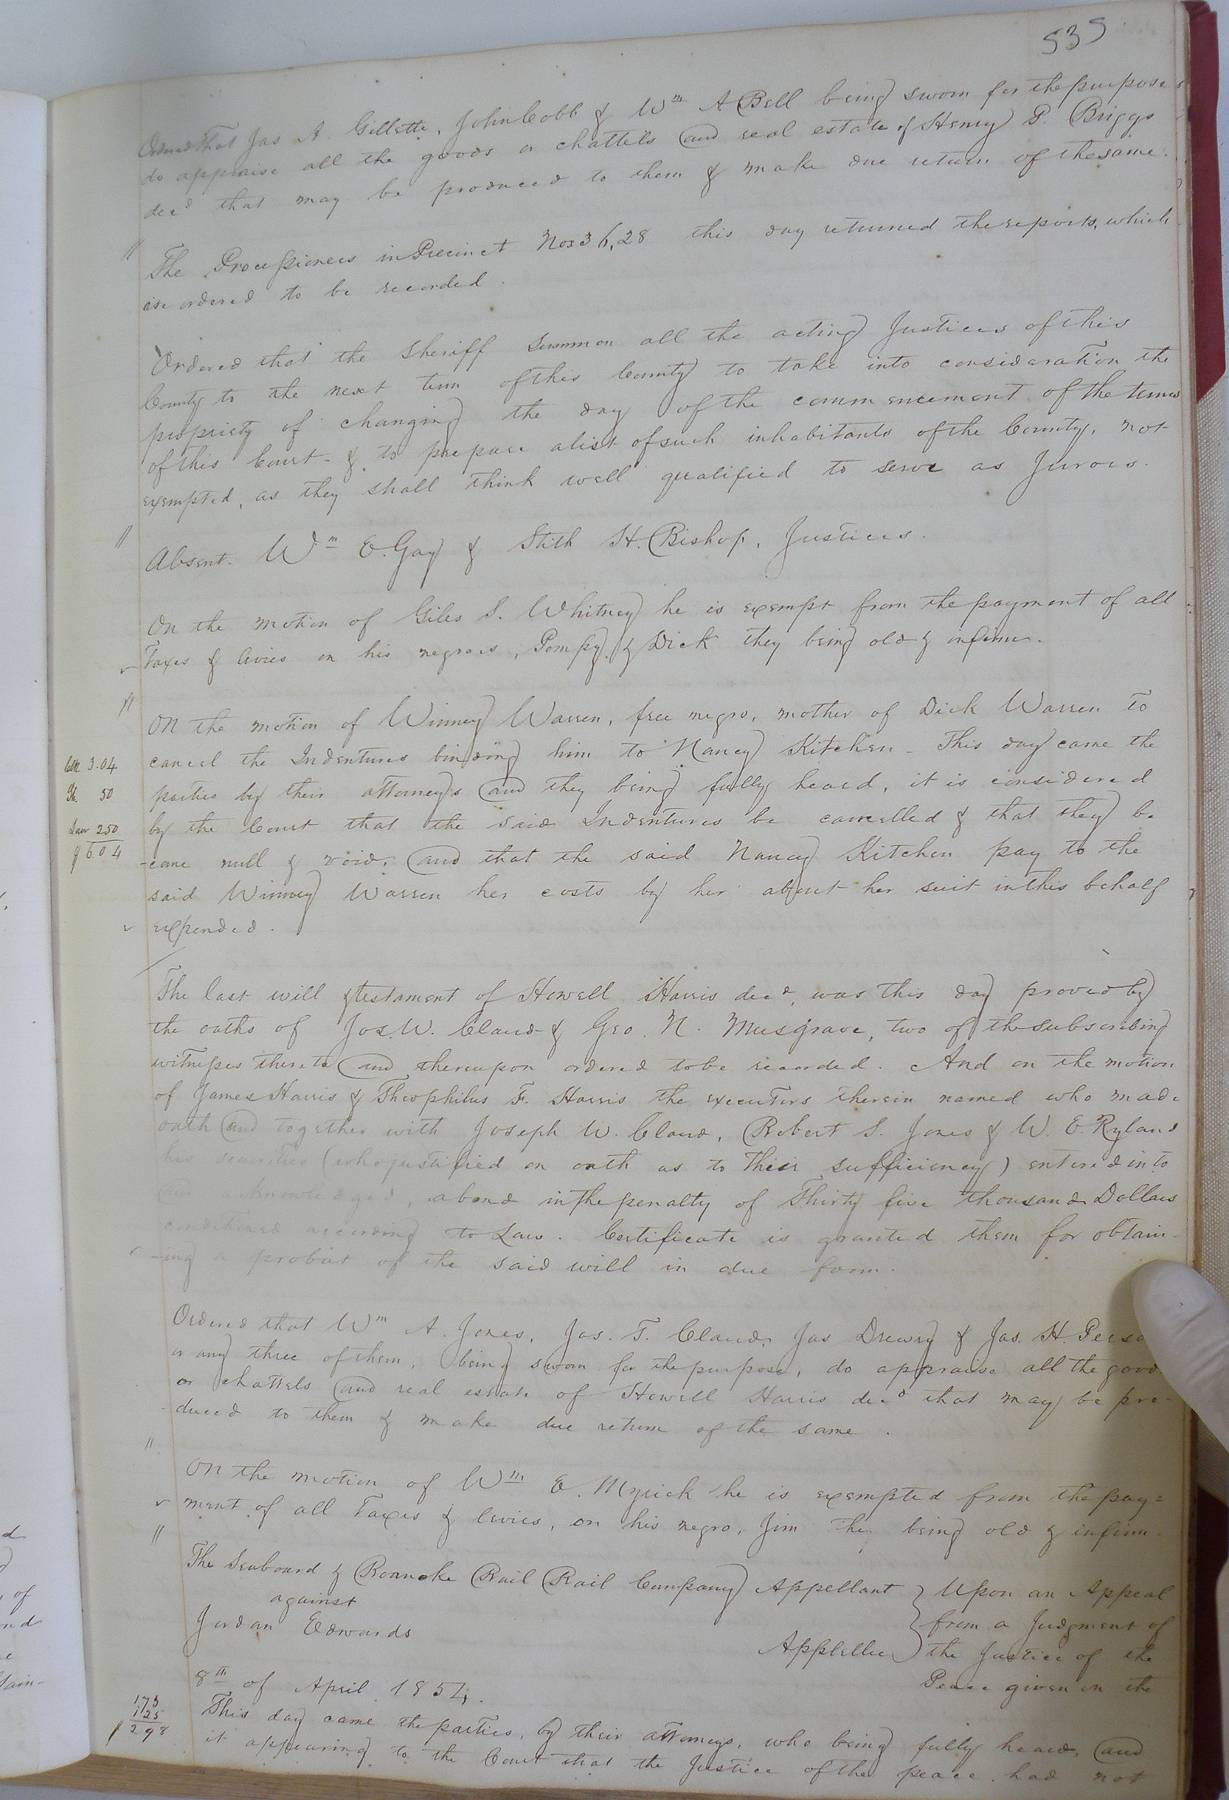 535
Ordered that Jas A. Gillette, John Cobb & Wm A Bell being sworn for the purpose
do appraise all the goods or chattels and real estate of Henry P. Briggs
decd that may be produced to them & make due return of the same.
The Processioners in Precinct Nos 3 6, 28 this day returned the reports, which
are ordered to be recorded.
Ordered that the Sheriff Summon all the acting Justices of this
County to the next term of this County to take into consideration the
propriety of changing the day of the commencement of the terms
of this Court & to prepare a list of such inhabitants of the County, not
exempted, as they shall think well qualified to serve as Jurors.
Absent. Wm E. Gay & Stith H. Bishop, Justices.
On the motion of Giles S. Whitney he is exempt from the payment of all
Taxes & levies on his negroes, Pompy, & Dick they being old & infirm.
On the motion of Winney Warren, free negro, mother of Dick Warren to
cancel the Indentures binding him to Nancy Kitchen - This day came the
3.04
parties by their attorneys and they being fully heard, it is considered
50
by the Court that the said Indentures be cancelled & that they be
2.50
-come null & void, and that the said Nancy Kitchen pay to the
$6.04
said Winney Warren her costs by her about her suit in this behalf
expended.
The last will & testament of Howell Harris decd, was this day proved by
the oaths of Jos. W. Claud & Geo. N. Musgrave, two of the subscribing
witnesses thereto and thereupon ordered to be recorded. And on the motion
of James Harris & Theophilus F. Harris the executors therein named who made
oath and together with Joseph W. Claud, Robert S. Jones & W. E. Ryland
his securities (who justified on oath as to their sufficiency) entered into
and acknowledged, a bond in the penalty of Thirty five thousand Dollars
conditioned according to Law. Certificate is granted them for obtain-
-ing a probat of the said will in due form.
Ordered that Wm A. Jones, Jas. T. Claud, Jas Drewry & Jas. H.
or any three of them, being sworn for the purpose, do appraise all the good
or chattels and real estate of Howell Harris decd that may be pro-
-duced to them & make due return of the same.
On the motion of Wm E. Myrick he is exempted from the pay=
ment of all Taxes & levies, on his negro, Jim they being old & infirm.
The Seaboard & Roanoke Rail Rail Company Appellant } Upon an Appeal
against
from a Judgment of
Jordan Edwards
Appellee
the Justice of the
Peace given on the
8th of April 1854.
173
125
$298
This day came the parties, by their attorneys, who being fully heard, and
it appearing to the Court that the Justice of the peace had not